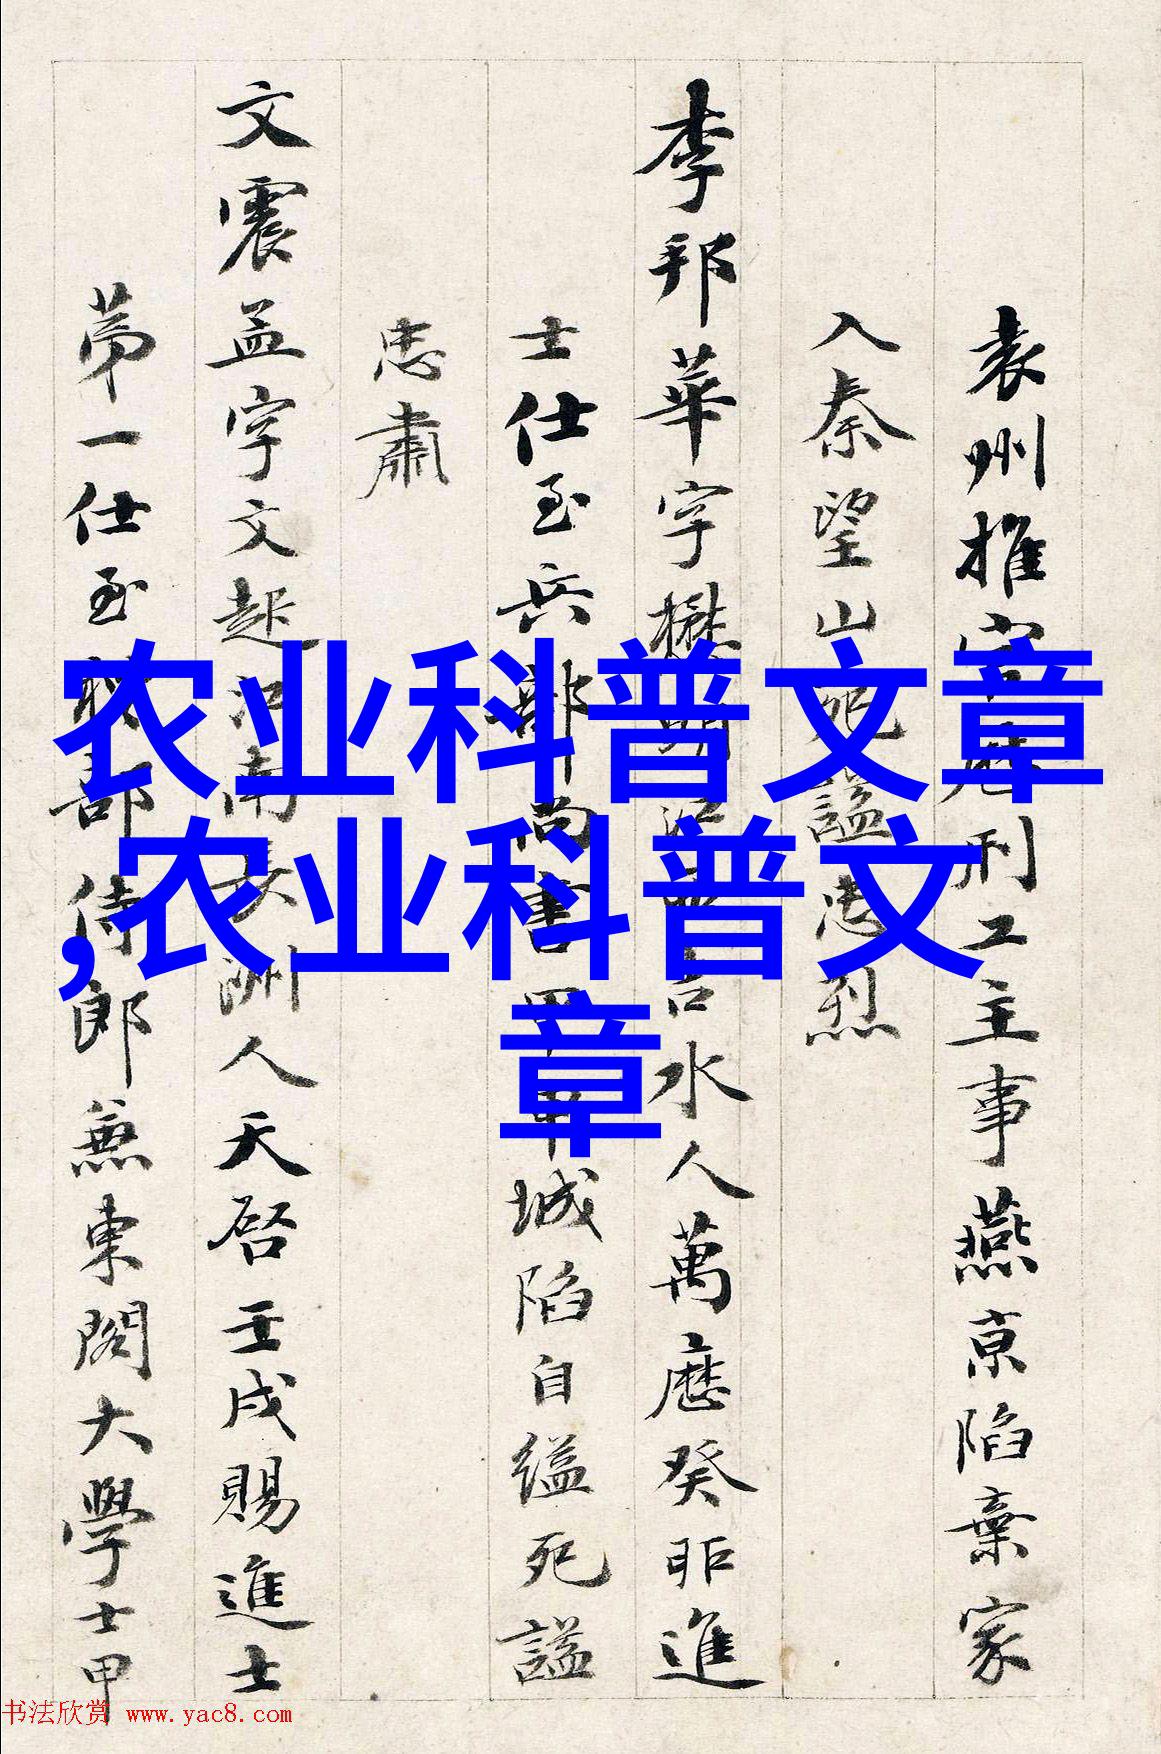 袁州推官㞮刑工主事燕京陷棄家
入秦望山死謚忠烈
李邦華字懋明江西吉水人萬曆癸卯進
士仕至兵部尚書甲申城陷自縊死謚
忠肅
文震孟字文起江南長洲人天啓壬戌賜進士
第一仕至 部侍郎兼東閣大學士甲
农业科普文章
,农业科普文
章
书法欣赏 www.yac8.com